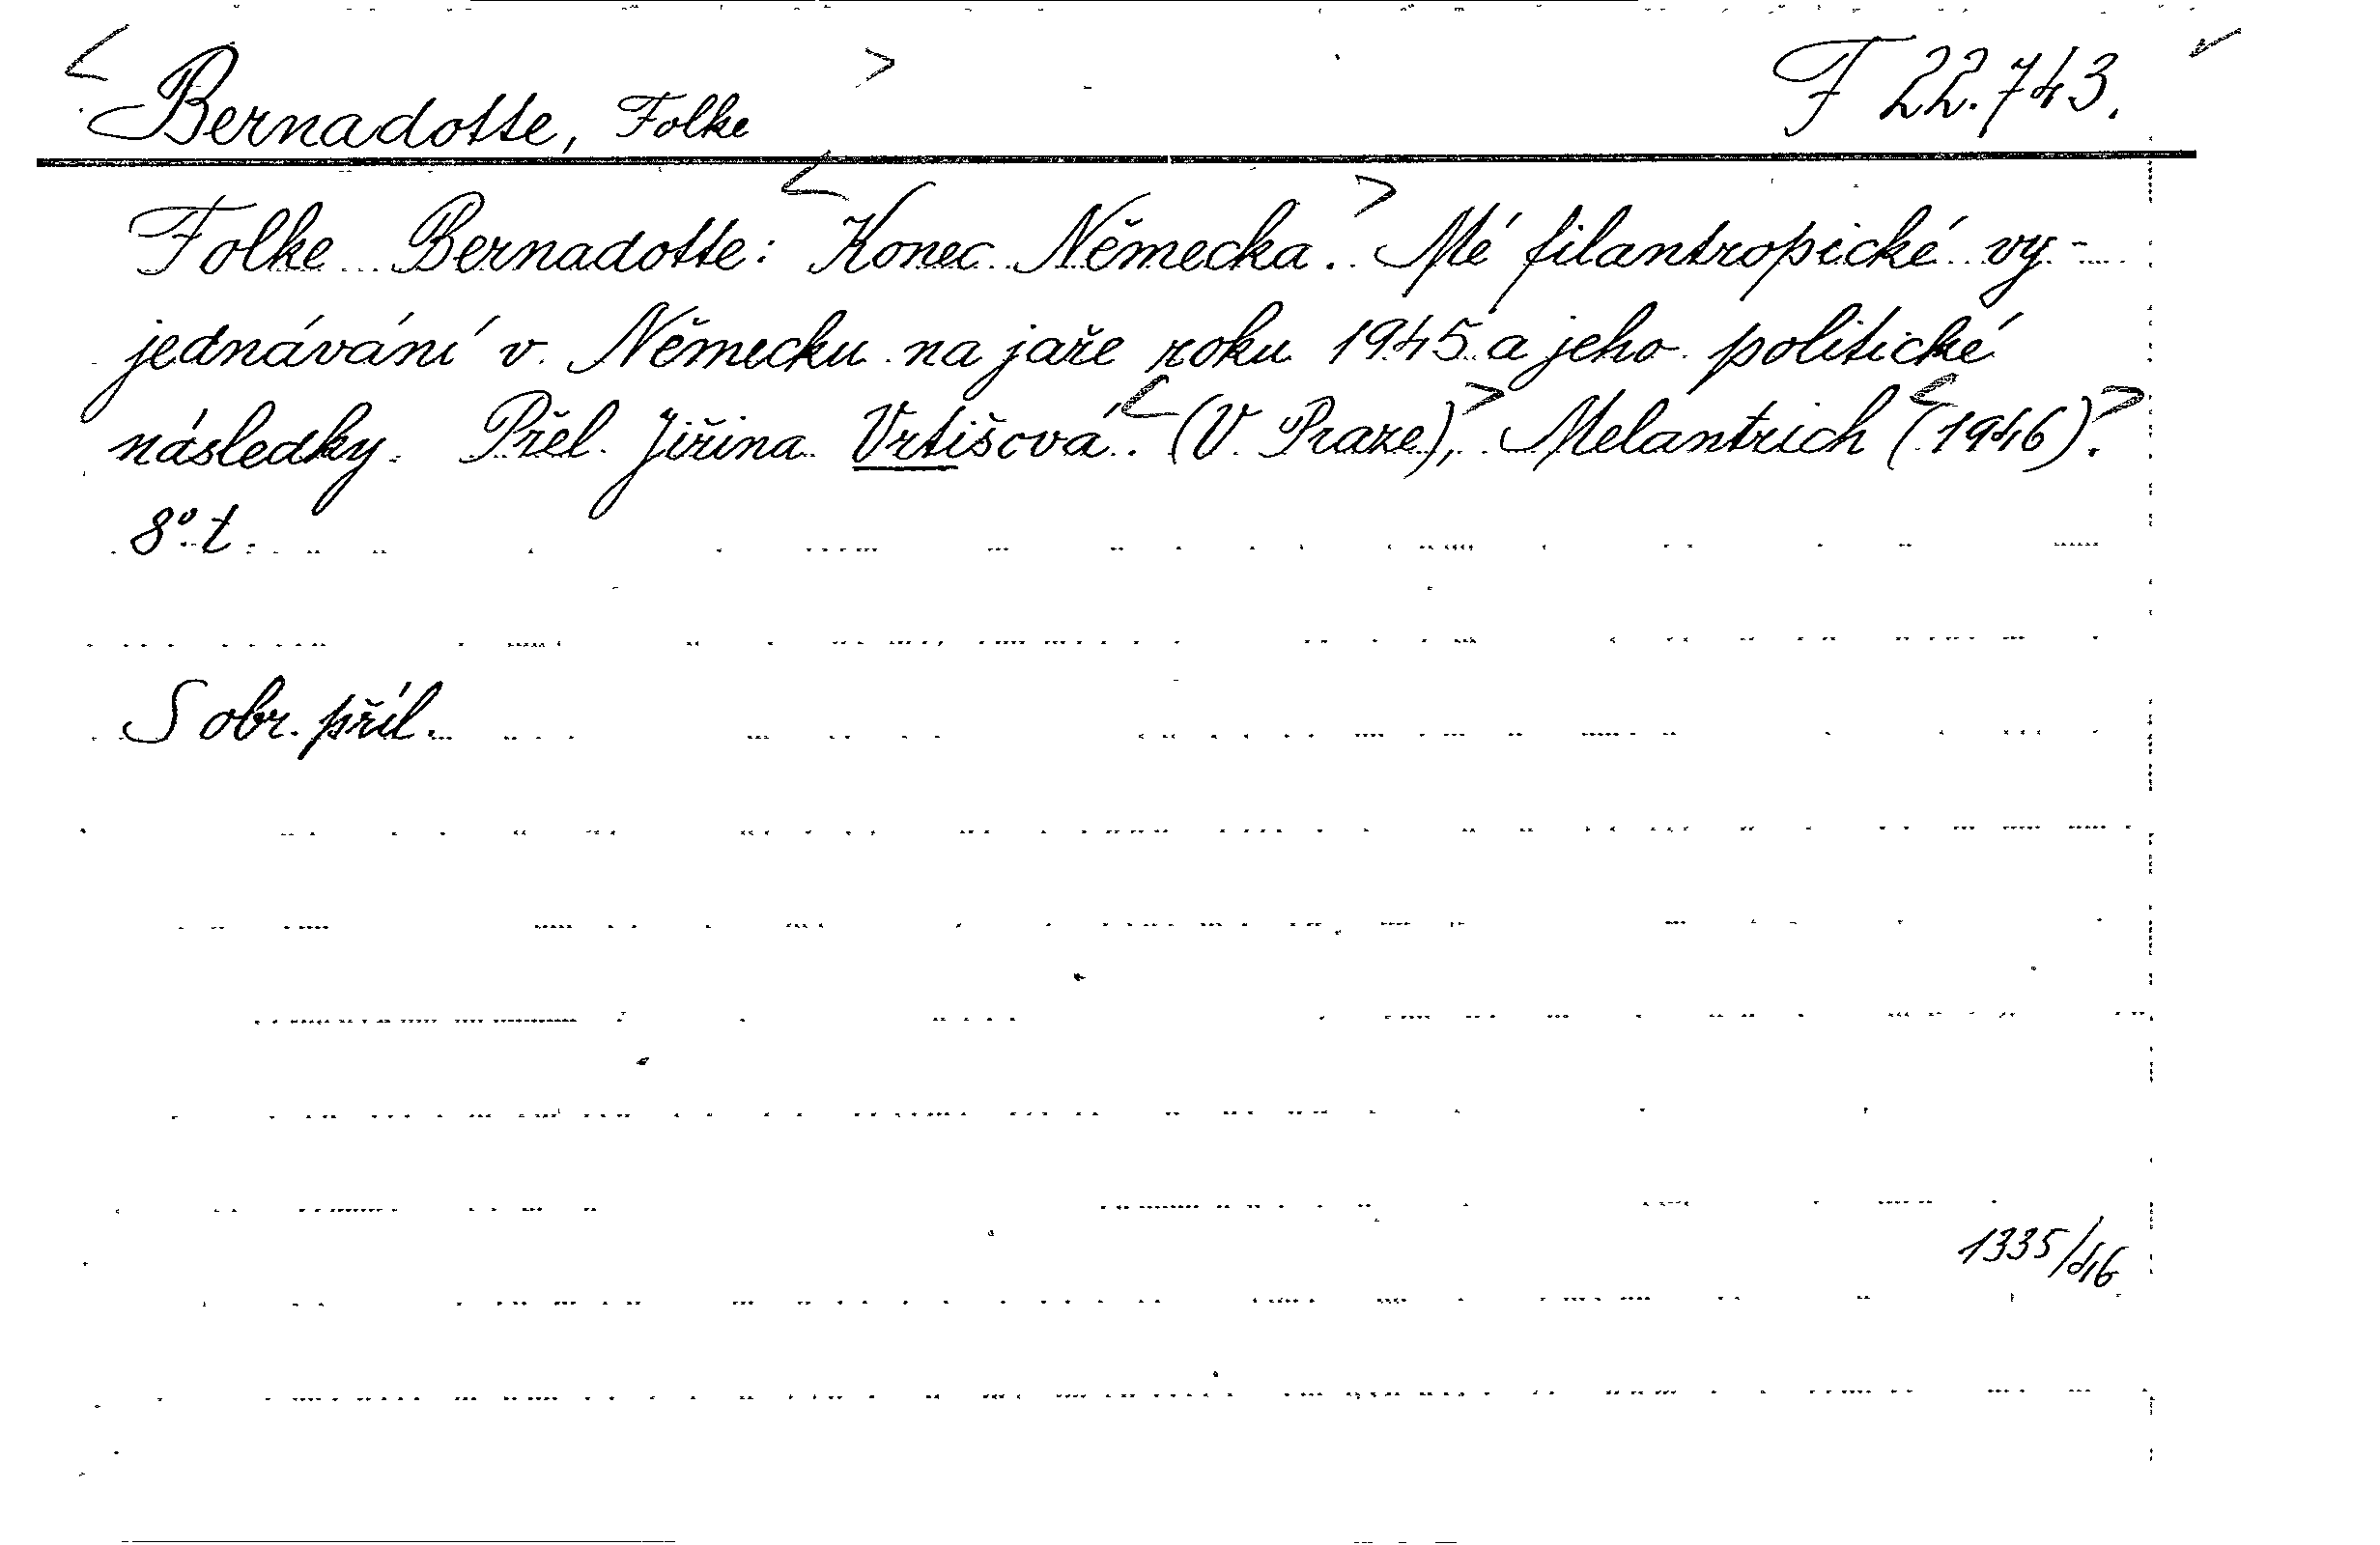 Bernadotte, Folke F 22.743.
Folke Bernadotte: Konec Německa. Mé filantropické vy-
jednávání v Německu na jaře roku 1945 a jeho politické
následky. Přel. Jiřina Vrtišová. (V Praze), Melantrich (1946).
8° t.
S obr. příl.
1335/46